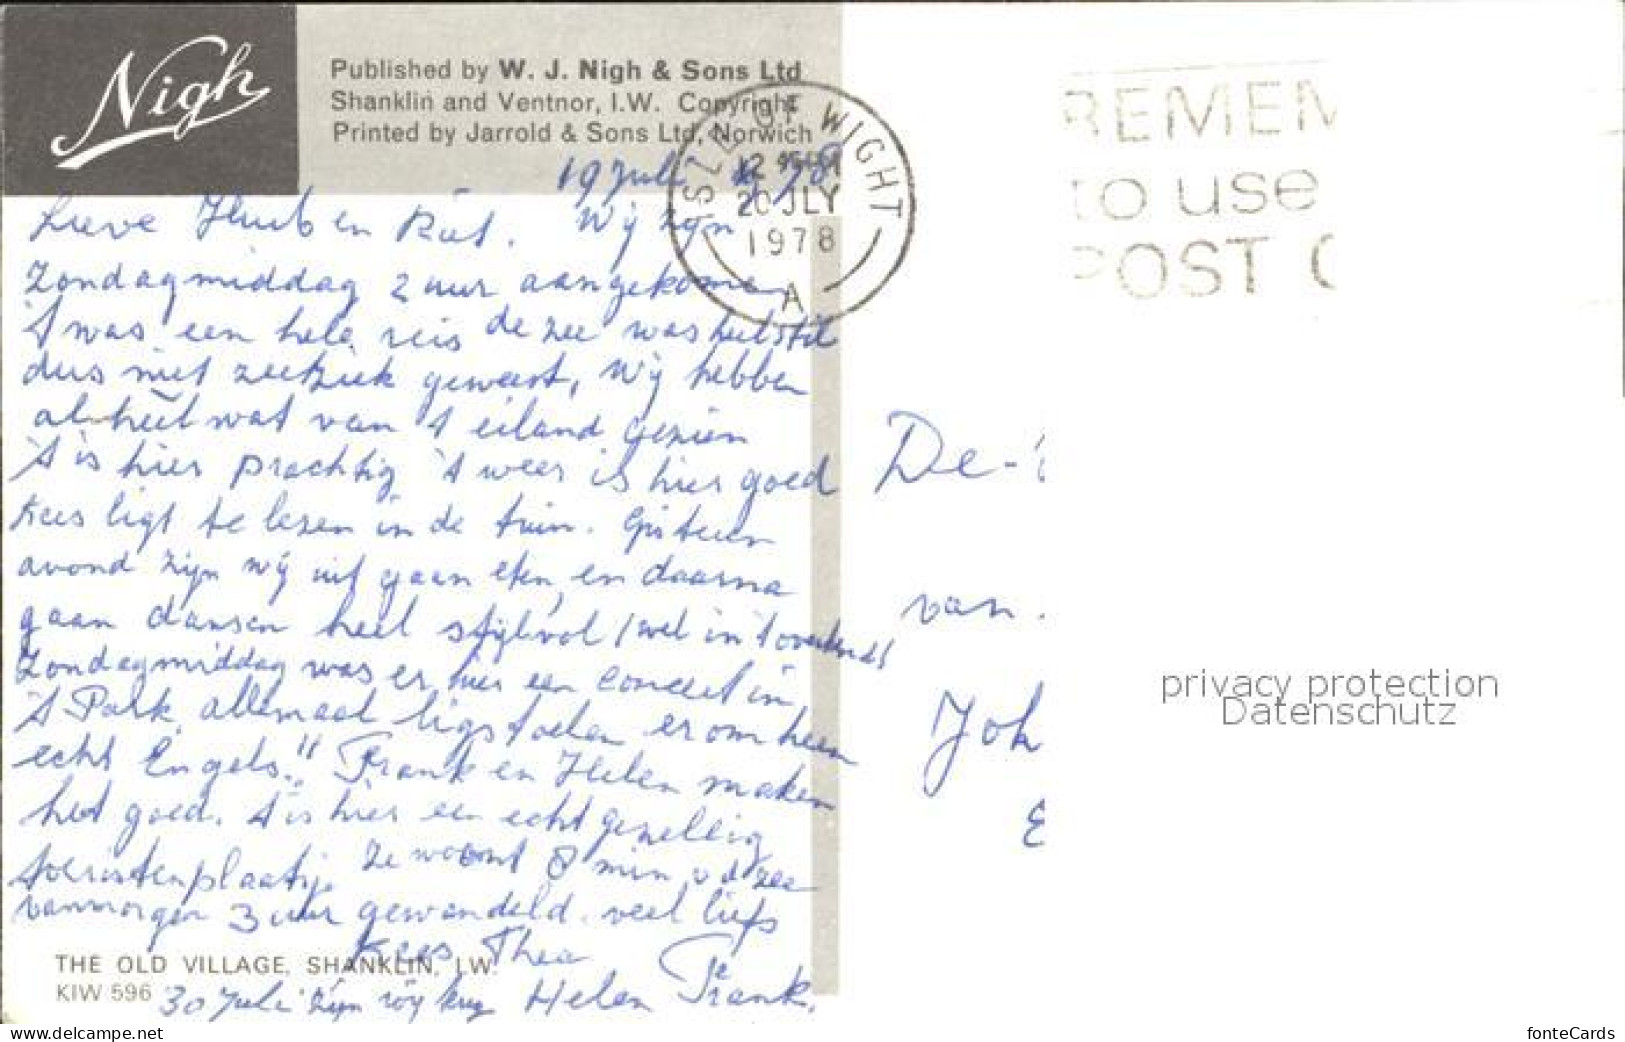 Nigh
Published by W. J. Nigh & Sons Ltd
Shanklin and Ventnor, I.W. Copyright
Printed by Jarrold & Sons Ltd, Norwich
ISLE OF WIGHT
20 JLY
1978
A
REMEM
to use
POST
19 Juli 78
Lieve Huub en Riet. Wij zijn
Zondagmiddag 2 uur aangekomen
't was een hele reis de zee was heel stil
dus niet zeeziek geweest, Wij hebben
al heel wat van 't eiland gezien
't is hier prachtig 't weer is hier goed
Kees ligt te lezen in de tuin. Gisteren
avond zijn wij uit gaan eten, en daarna
gaan dansen heel stijlvol
Zondagmiddag was er hier een concert in
't Park, allemaal ligstoelen er om heen
echt Engels." Frank en Helen maken
het goed. 't is hier een echt gezellig
toeristenplaatsje ze woont 8 min v d zee
vanmorgen 3 uur gewandeld. veel liefs
Kees Thea
Helen Frank.
30 Juli zijn wij
THE OLD VILLAGE, SHANKLIN, I.W.
KIW 596
De-
van
Joh
E
privacy protection
Datenschutz
www.delcampe.net
fonteCards